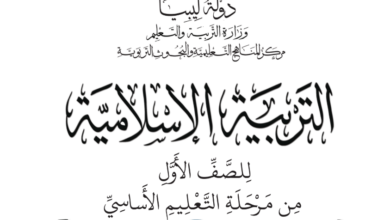 دَوْلَة لِيبِيَا
وَزَارَةُ التَّرْبِيَةِ وَالتَّعْلِيمِ
مَرْكَزُ المَنَاهِجِ التَّعْلِيمِيَّةِ وَالبُحُوثِ التَّرْبَوِيَّةِ
التَّرْبِيَةُ الإِسْلَامِيَّة
لِلصَّفِّ الأَوَّلِ
مِن مَرْحَلَةِ التَّعْلِيمِ الأَسَاسِيِّ